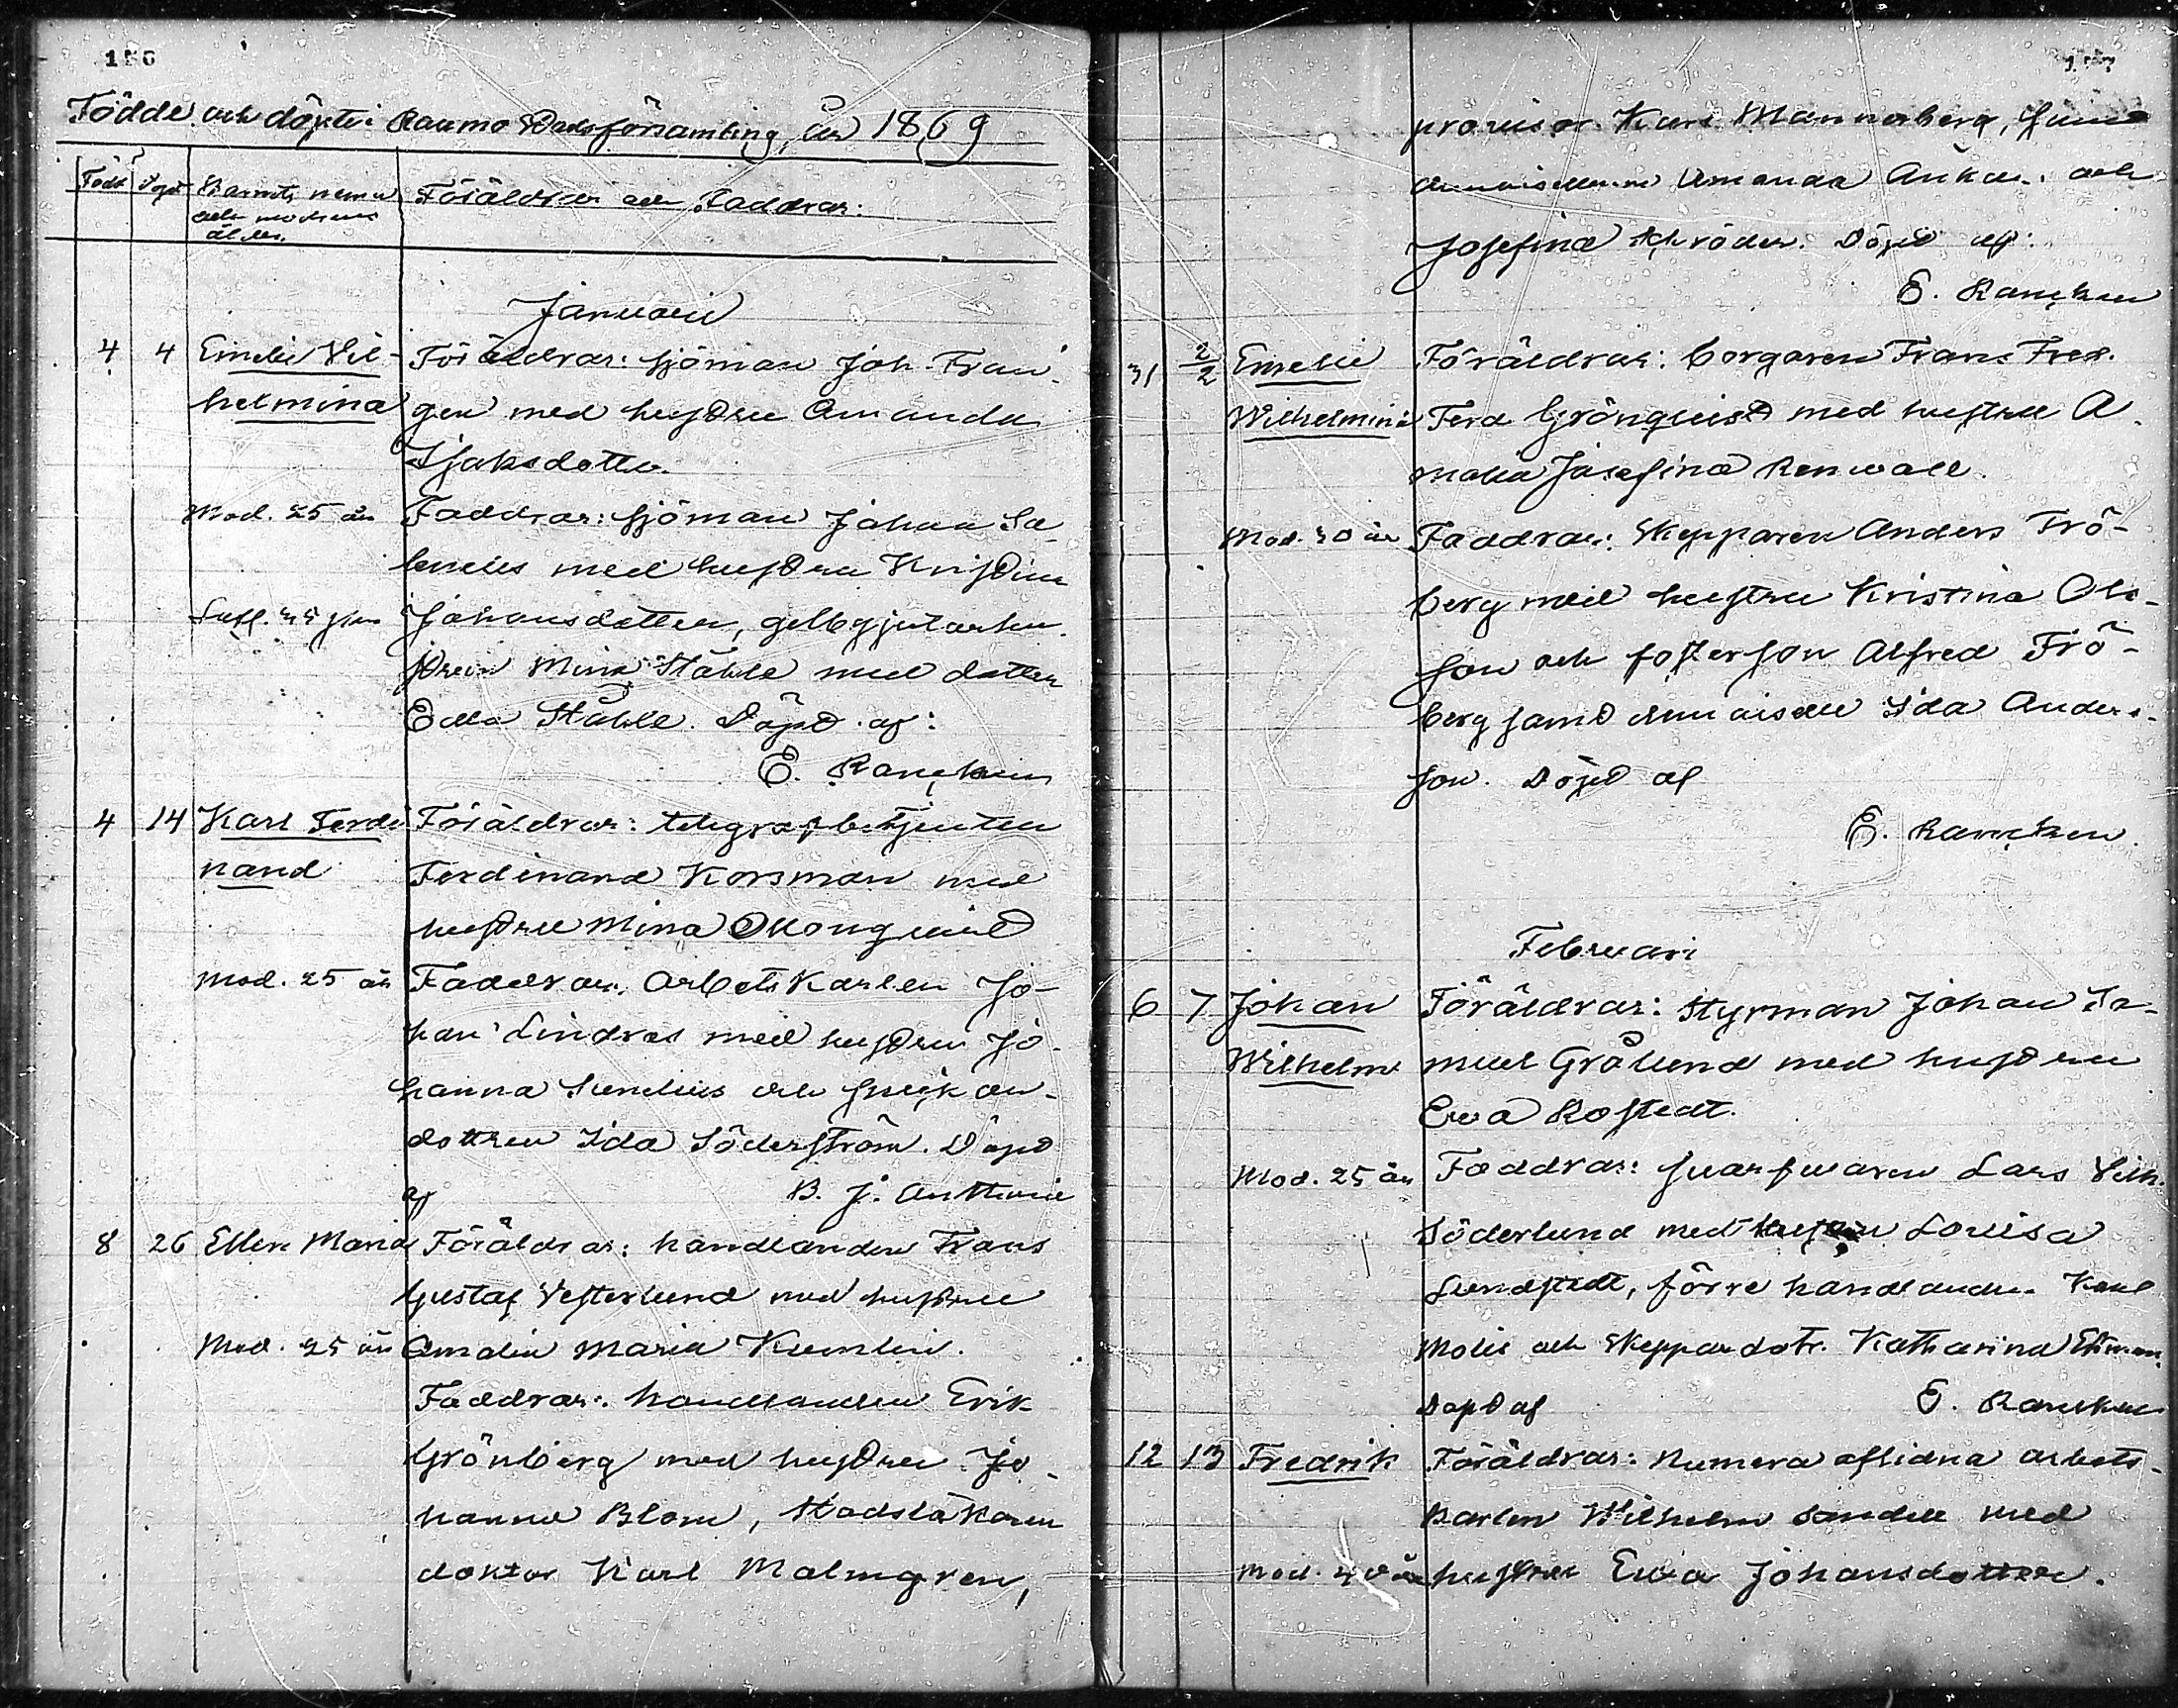 156
Födde och döpte i Raumo Stadsförsamling, år 1869
Född Döpt Barnets namn och modrens ålder. Föräldrar och Faddrar:
Januari
4 4 Emelie Vil- Föräldrar: sjöman Joh. Fran-
helmina gen med hustru Amanda
Isaksdotter.
Mod. 25 år Faddrar: sjöman Johan Sa-
lenius med hustru Kristina
Johansdotter, gelbgjutarhu-
strun Mina Ståhle med dotter
Edla Ståhle. Döpt af:
E. Rancken
4 14 Karl Ferdi- Föräldrar: telegrafbetjenten
nand Ferdinand Korsman med
hustru Mina
Mod. 25 år Faddrar: Arbetskarlen Jo-
han Lindros med hustru Jo-
hanna Sunelius och snickar-
dottren Ida Söderström. Döpt
af B. J. Anthoni
8 26 Ellen Maria Föräldrar: handlanden Frans
Gustaf Vesterlund med hustru
Mod. 25 år Amalia Maria Kumlin.
Faddrar: handlanden Erik
Grönberg med hustru Jo-
hanna Blom, Stadsläkaren
doktor Karl Malmgren,
provisor Karl Mannerberg,
Amanda och
Josefina Schröder. Döpt af:
E. Rancken
31 2/2 Emelie Föräldrar: borgaren Frans Fred.
Wilhelmina Ferd. Grönquist med hustru A-
malia Josefina Renwall.
Mod. 30 år Faddrar: Skepparen Anders Frö-
berg med hustru Kristina Ols-
son och fosterson Alfred Frö-
berg samt demoiselle Ida Anders-
son. Döpt af
E. Rancken.
Februari
6 7 Johan Föräldrar: Styrman Johan Sa-
Wilhelm muel Grålund med hustru
Eva Rostedt.
Mod. 25 år Faddrar: svarfvaren Lars Vilh.
Söderlund med hustru Lovisa
Lundstedt, förre handlanden Karl
Molis och Skeppardotr. Katharina Ekman.
Döpt af E. Rancken
12 13 Fredrik Föräldrar: Numera aflidna arbets-
karlen Wilhelm Sandell med
Mod. 40 år hustru Eva Johansdotter.